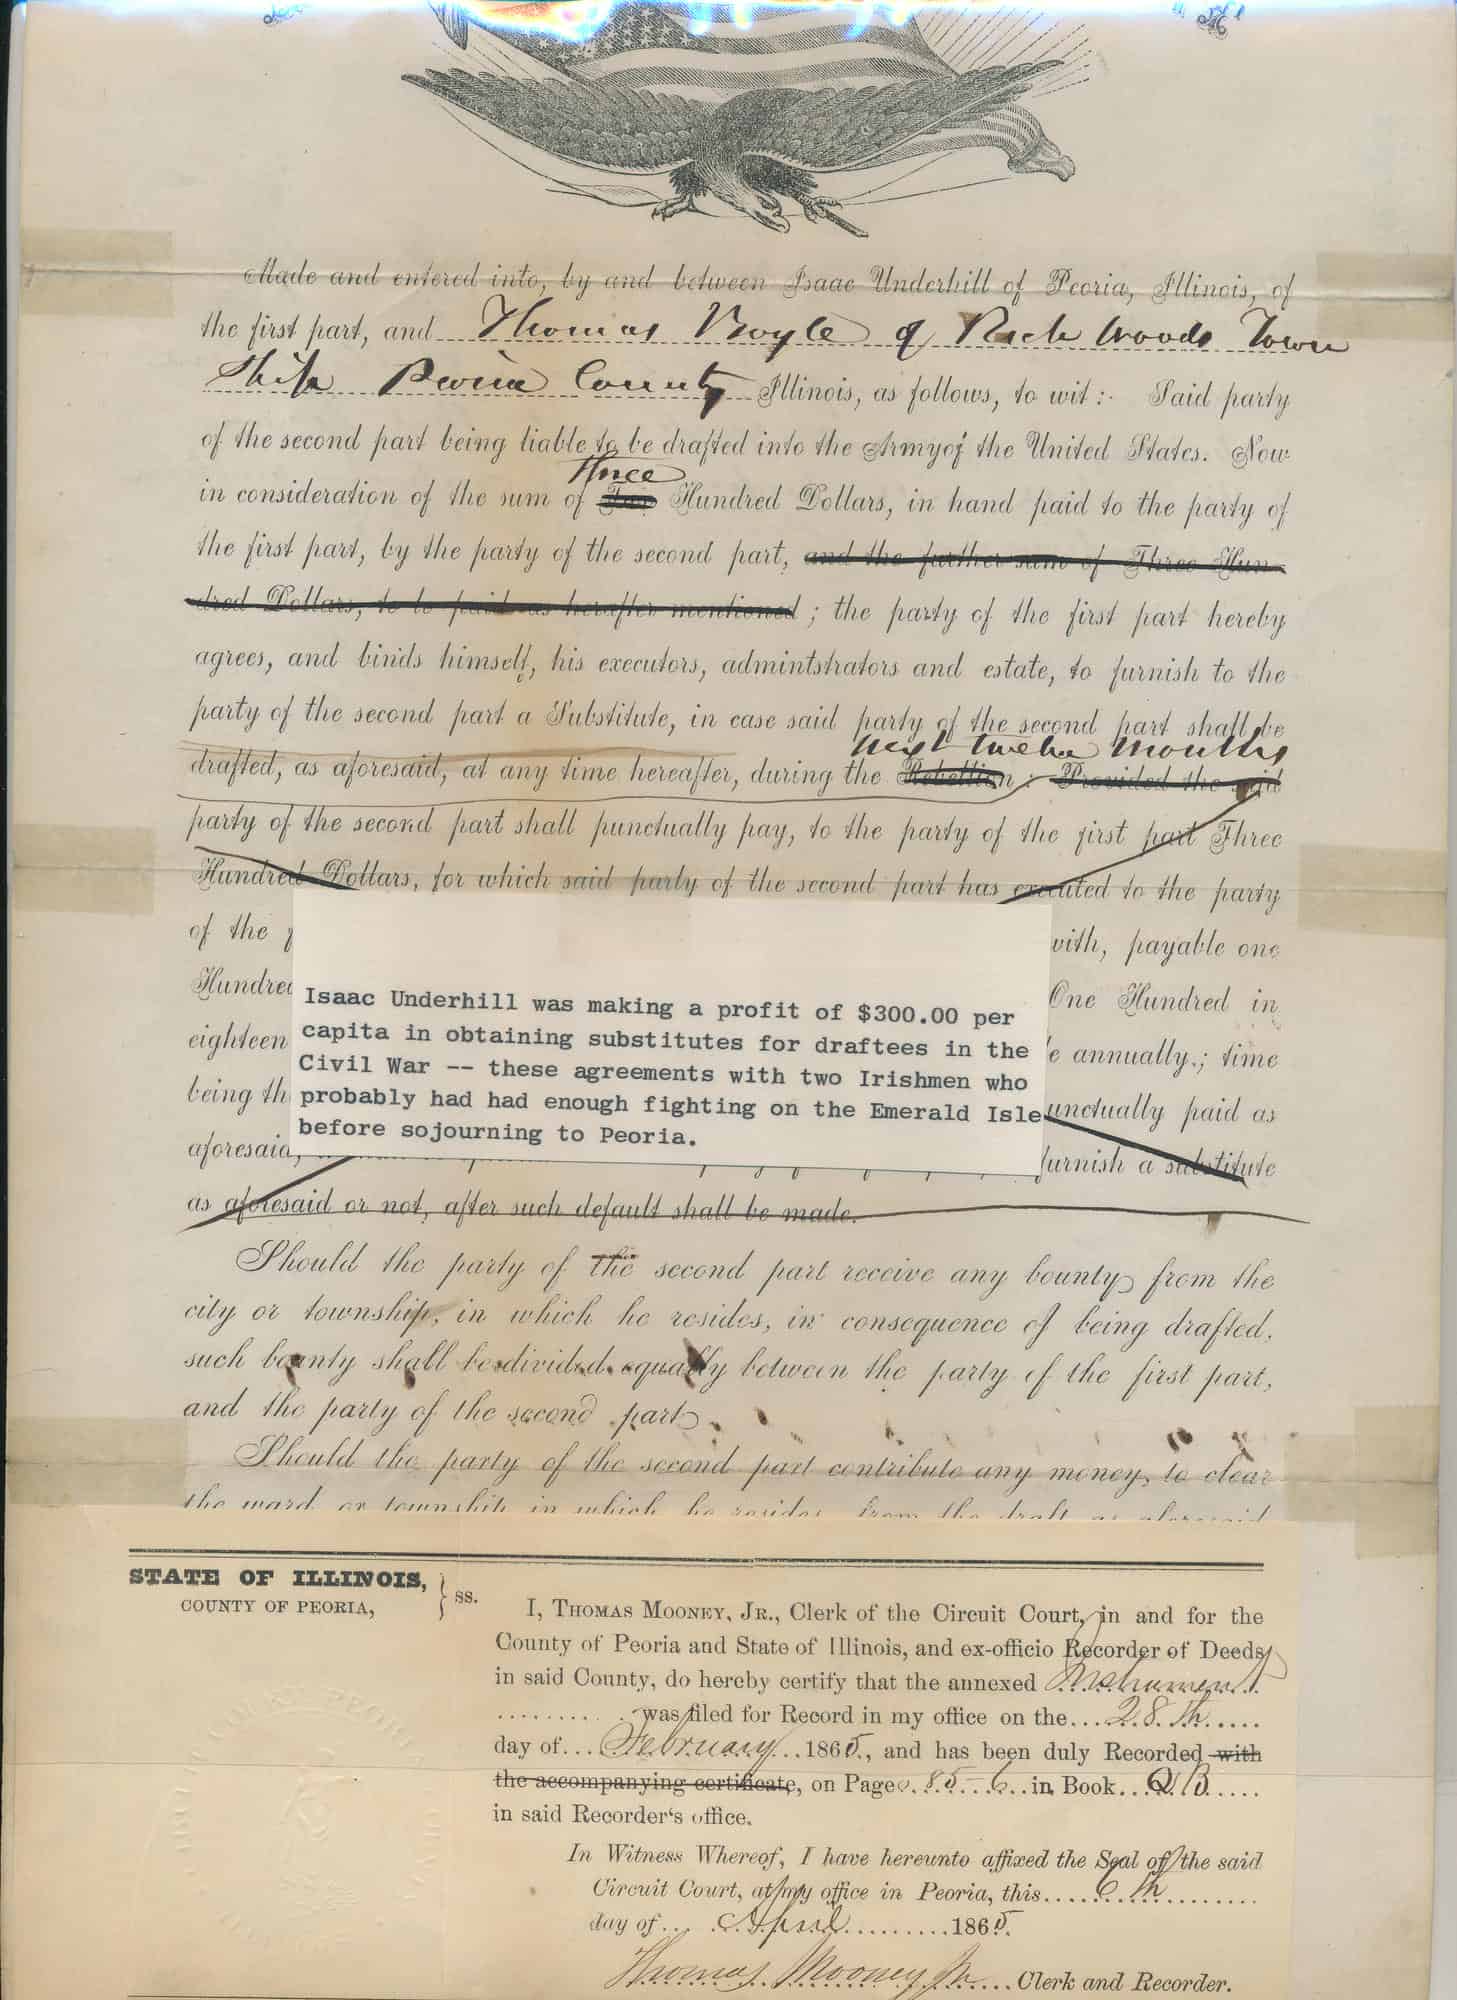 Made and entered into, by and between Isaac Underhill of Peoria, Illinois, of
the first part, and Thomas Boyle of Rich Woods Town
Ship Peoria County Illinois, as follows, to wit: Said party
of the second part being liable to be drafted into the Army of the United States. Now
Three
in consideration of the sum of Hundred Dollars, in hand paid to the party of
the first part, by the party of the second part, and the further sum of Three Hun-
dred Dollars, to be paid as herafter mentioned; the party of the first part hereby
agrees, and binds himself, his executors, admintstrators and estate, to furnish to the
party of the second part a Substitute, in case said party of the second part shall be
next twelve months
drafted, as aforesaid, at any time hereafter, during the Rebellion: Provided the said
party of the second part shall punctually pay, to the party of the first part Three
Hundred Dollars, for which said party of the second part has executed to the party
of the with, payable one
Hundred One Hundred in
eighteen annually.; time
being punctually paid as
aforesaid, furnish a substitute
as aforesaid or not, after such default shall be made.
Isaac Underhill was making a profit of $300.00 per
capita in obtaining substitutes for draftees in the
Civil War -- these agreements with two Irishmen who
probably had had enough fighting on the Emerald Isle
before sojourning to Peoria.
Should the party of the second part receive any bounty from the
city or township, in which he resides, in consequence of being drafted,
such bounty shall be divided equally between the party of the first part,
and the party of the second part.
Should the party of the second part contribute any money, to clear
the ward or township in which he resides from the draft as aforesaid
STATE OF ILLINOIS,
COUNTY OF PEORIA,
ss.
I, THOMAS MOONEY, JR., Clerk of the Circuit Court, in and for the
County of Peoria and State of Illinois, and ex-officio Recorder of Deeds
in said County, do hereby certify that the annexed Instrument
was filed for Record in my office on the 28th
day of February 1865, and has been duly Recorded with
the accompanying certificate, on Page 85-6 in Book QB
in said Recorder's office.
In Witness Whereof, I have hereunto affixed the Seal of the said
Circuit Court, at my office in Peoria, this 6th
day of April 1865.
Thomas Mooney Jr Clerk and Recorder.